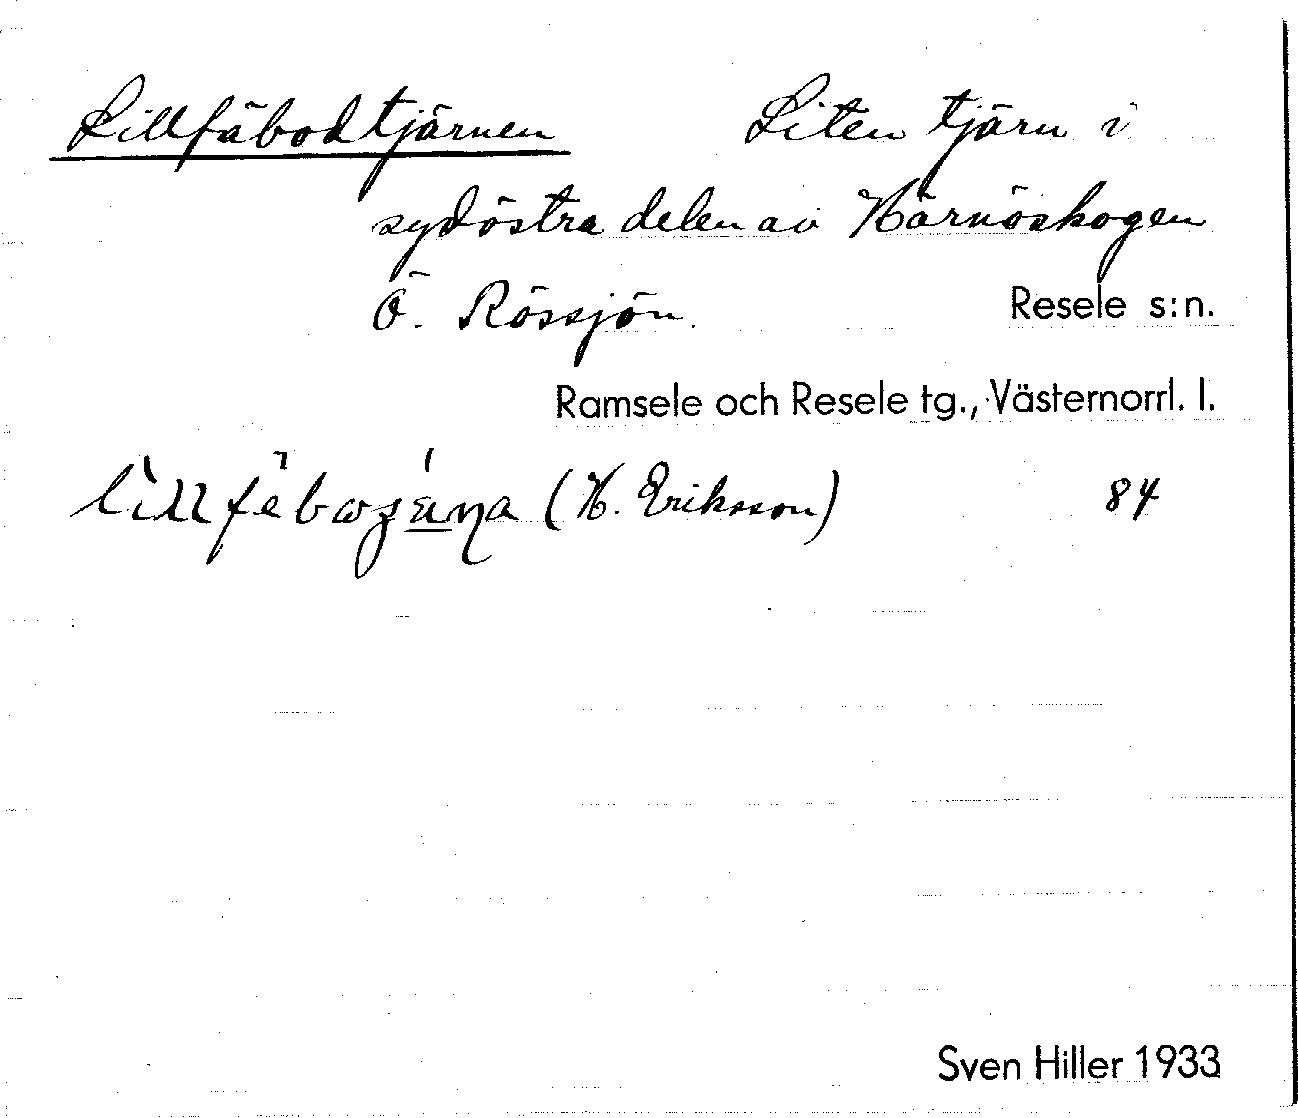 Lillfäbodtjärnen Liten tjärn i
sydöstra delen av Härnöskogen
Ö. Rössjön. Resele s:n.
Ramsele och Resele tg., Västernorrl. l.
(H. Eriksson) 84
Sven Hiller 1933